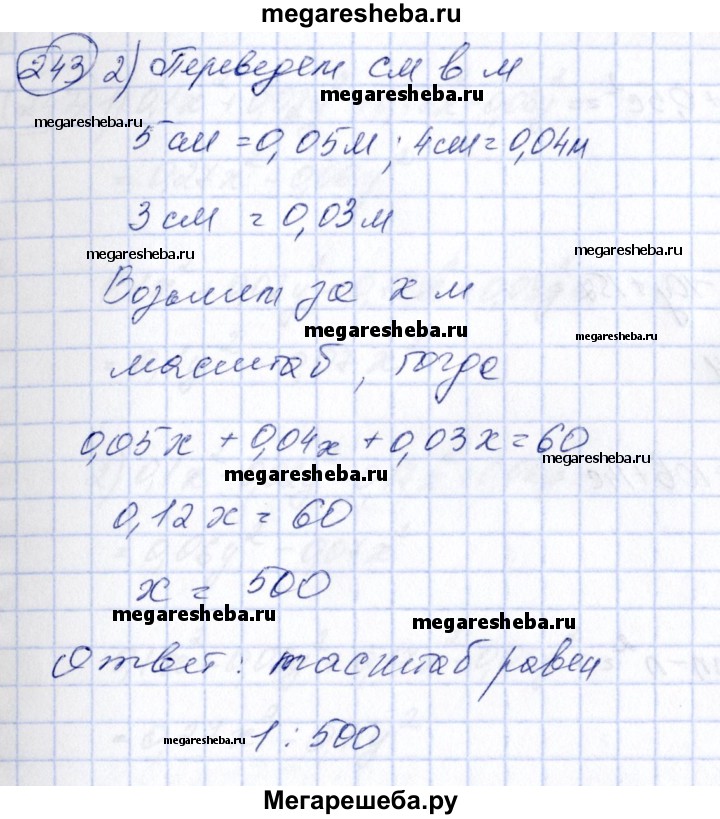 megaresheba.ru
243 2) Переведем см в м
megaresheba.ru
megaresheba.ru
5 см = 0,05м ; 4см = 0,04м
3 см = 0,03м
megaresheba.ru
megaresheba.ru
Возьмем за x м
megaresheba.ru
megaresheba.ru
масштаб, тогда
0,05x + 0,04x + 0,03x = 60
megaresheba.ru
megaresheba.ru
0,12x = 60
x = 500
megaresheba.ru
megaresheba.ru
Ответ: масштаб равен
megaresheba.ru 1 : 500
Мегарешеба.ру